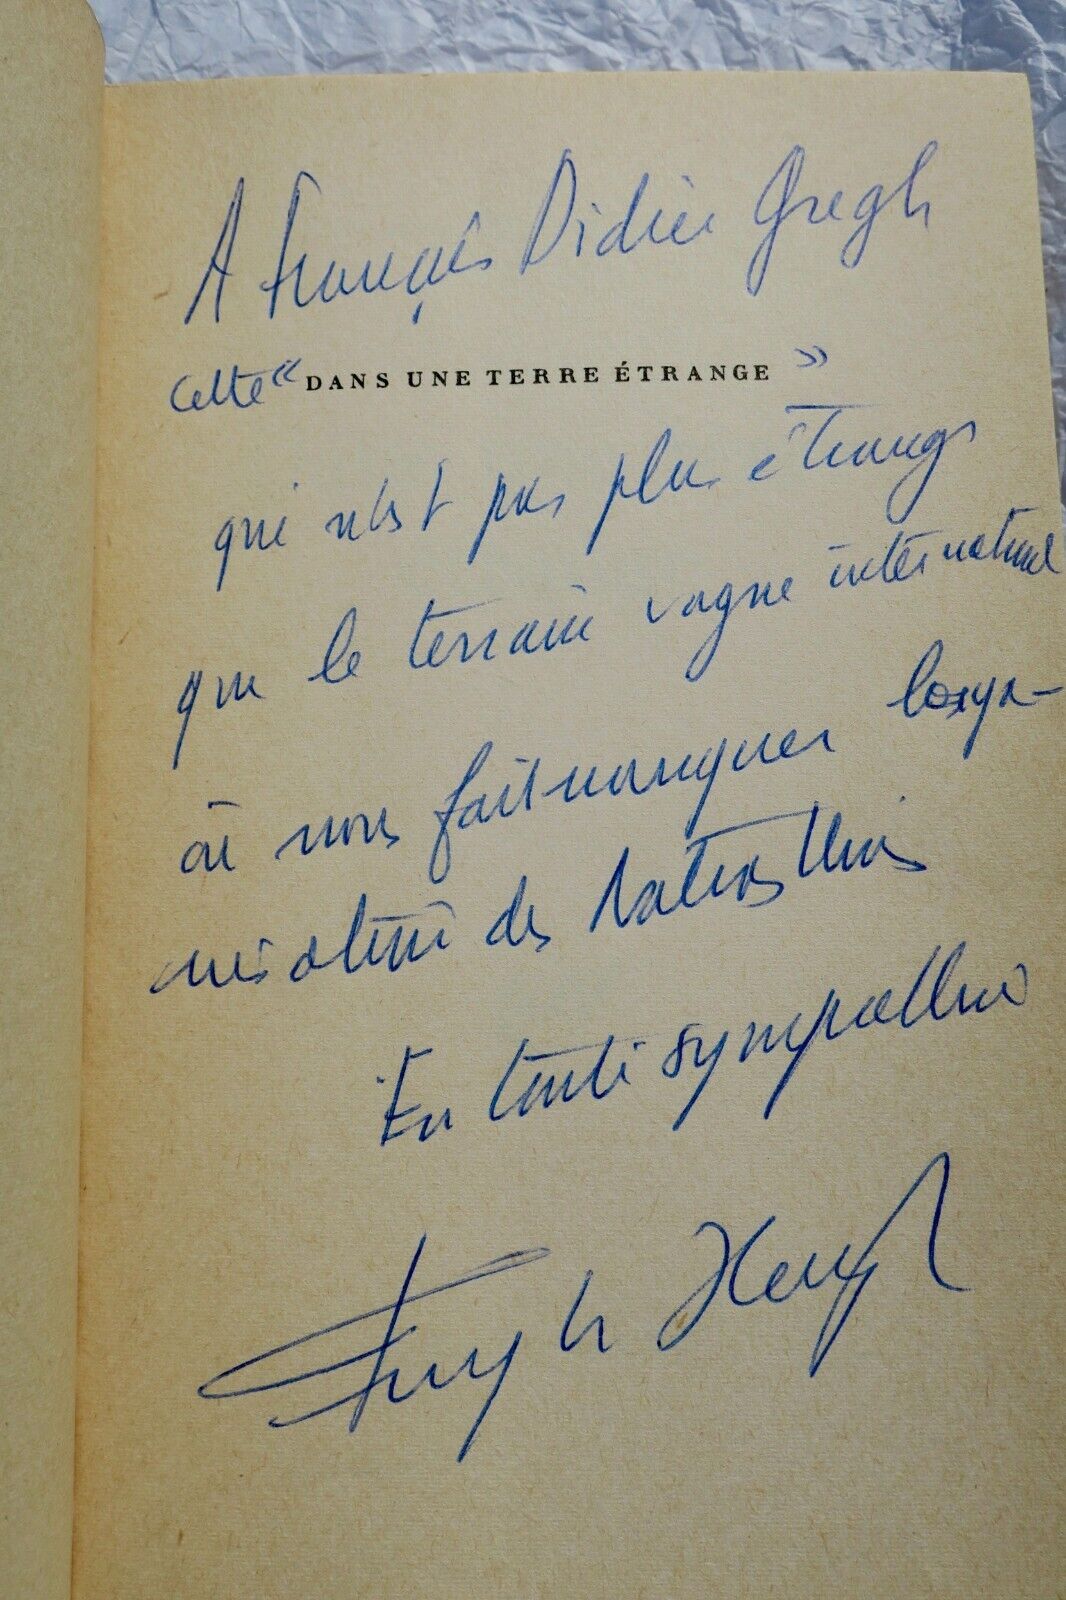 A François Didier Gregh
Cette « DANS UNE TERRE ÉTRANGE »
qui n'est pas plus étrange
que le terrain vague international
où nous fait manquer l'oxyg-
des Nations Unies
En toute sympathie